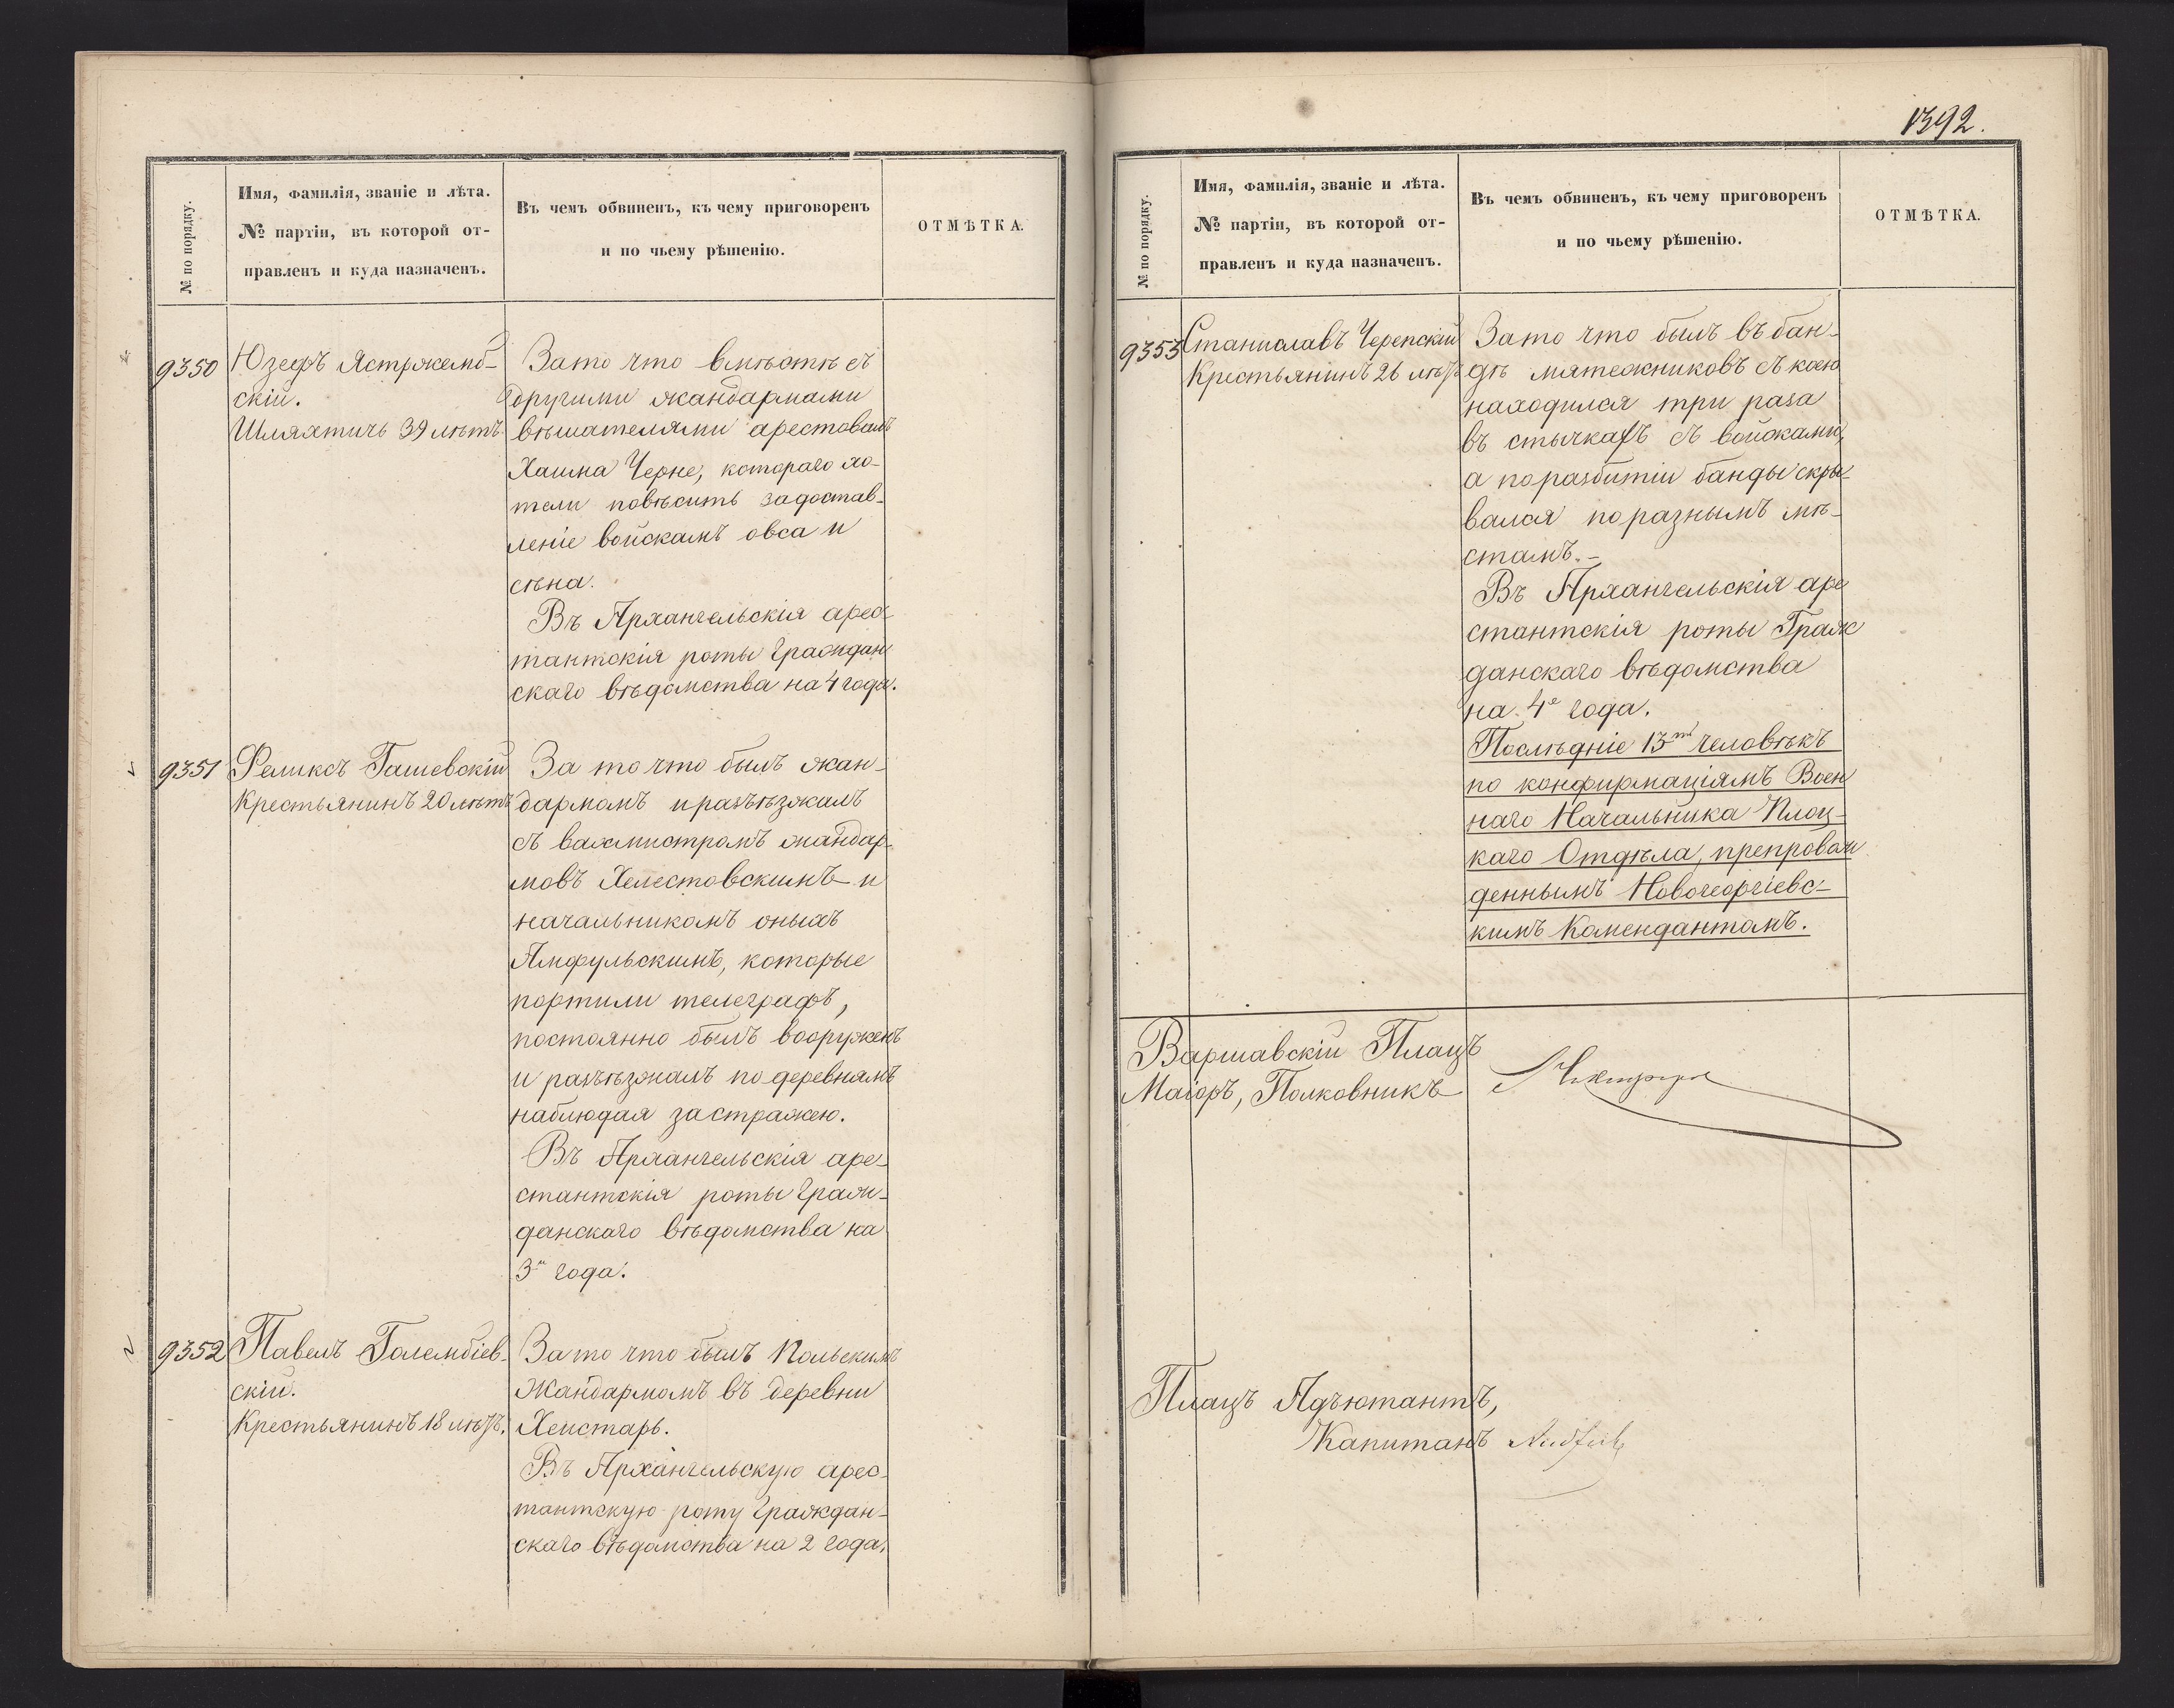 № по порядку.
Имя, фамилія, званіе и лѣта.
№ партіи, въ которой от-
правленъ и куда назначенъ.
Въ чемъ обвиненъ, къ чему приговоренъ
и по чьему рѣшенію.
ОТМѢТКА.
9350
Юзефъ Ястржемб-
скій.
Шляхтичъ 39 лѣтъ.
За то что вмѣстѣ съ
другими жандармами
вѣшателями арестовалъ
Хаима Черне, котораго хо-
тели повѣсить за достав-
леніе войскамъ овса и
сѣна.
Въ Архангельскія арес-
тантскія роты граждан
скаго вѣдомства на 4 года.
9351
Феликсъ Гашевскій
Крестьянинъ 20 лѣтъ
За то что былъ жан-
дармомъ и разъѣзжалъ
съ вахмистромъ жандар-
мовъ Хелестовскимъ и
начальникомъ оныхъ
Амфульскимъ, которые
портили телеграфъ,
постоянно былъ вооруженъ
и разъѣзжалъ по деревнямъ
наблюдая за стражею.
Въ Архангельскія аре-
стантскія роты граж-
данскаго вѣдомства на
3и года.
9352
Павелъ Голембіев-
скій.
Крестьянинъ 18 лѣтъ.
За то что былъ Польскимъ
Жандармомъ въ деревни
Хеистарь.
Въ Архангельскую арес-
тантскую роту граждан-
скаго вѣдомства на 2 года.
1392.
№ по порядку.
Имя, фамилія, званіе и лѣта.
№ партіи, въ которой от-
правленъ и куда назначенъ.
Въ чемъ обвиненъ, къ чему приговоренъ
и по чьему рѣшенію.
ОТМѢТКА.
9353
Станиславъ Черепскій
Крестьянинъ 26 лѣтъ
За то что былъ въ бан-
дѣ мятежниковъ съ коею
находился три раза
въ стычкахъ съ войсками,
а по разбитіи банды скры-
вался по разнымъ мѣ-
стамъ.-
Въ Архангельскія аре
стантскія роты Граж
данскаго вѣдомства
на 4е года.
Послѣдніе 13ть человѣкъ
по конфирмаціямъ Воен
наго Начальника Плоц-
каго Отдѣла, препровож
деннымъ Новогеоргіевс-
кимъ Комендантомъ.
Варшавскій Плацъ
Маіоръ, Полковникъ
Плацъ Адъютантъ,
Капитанъ